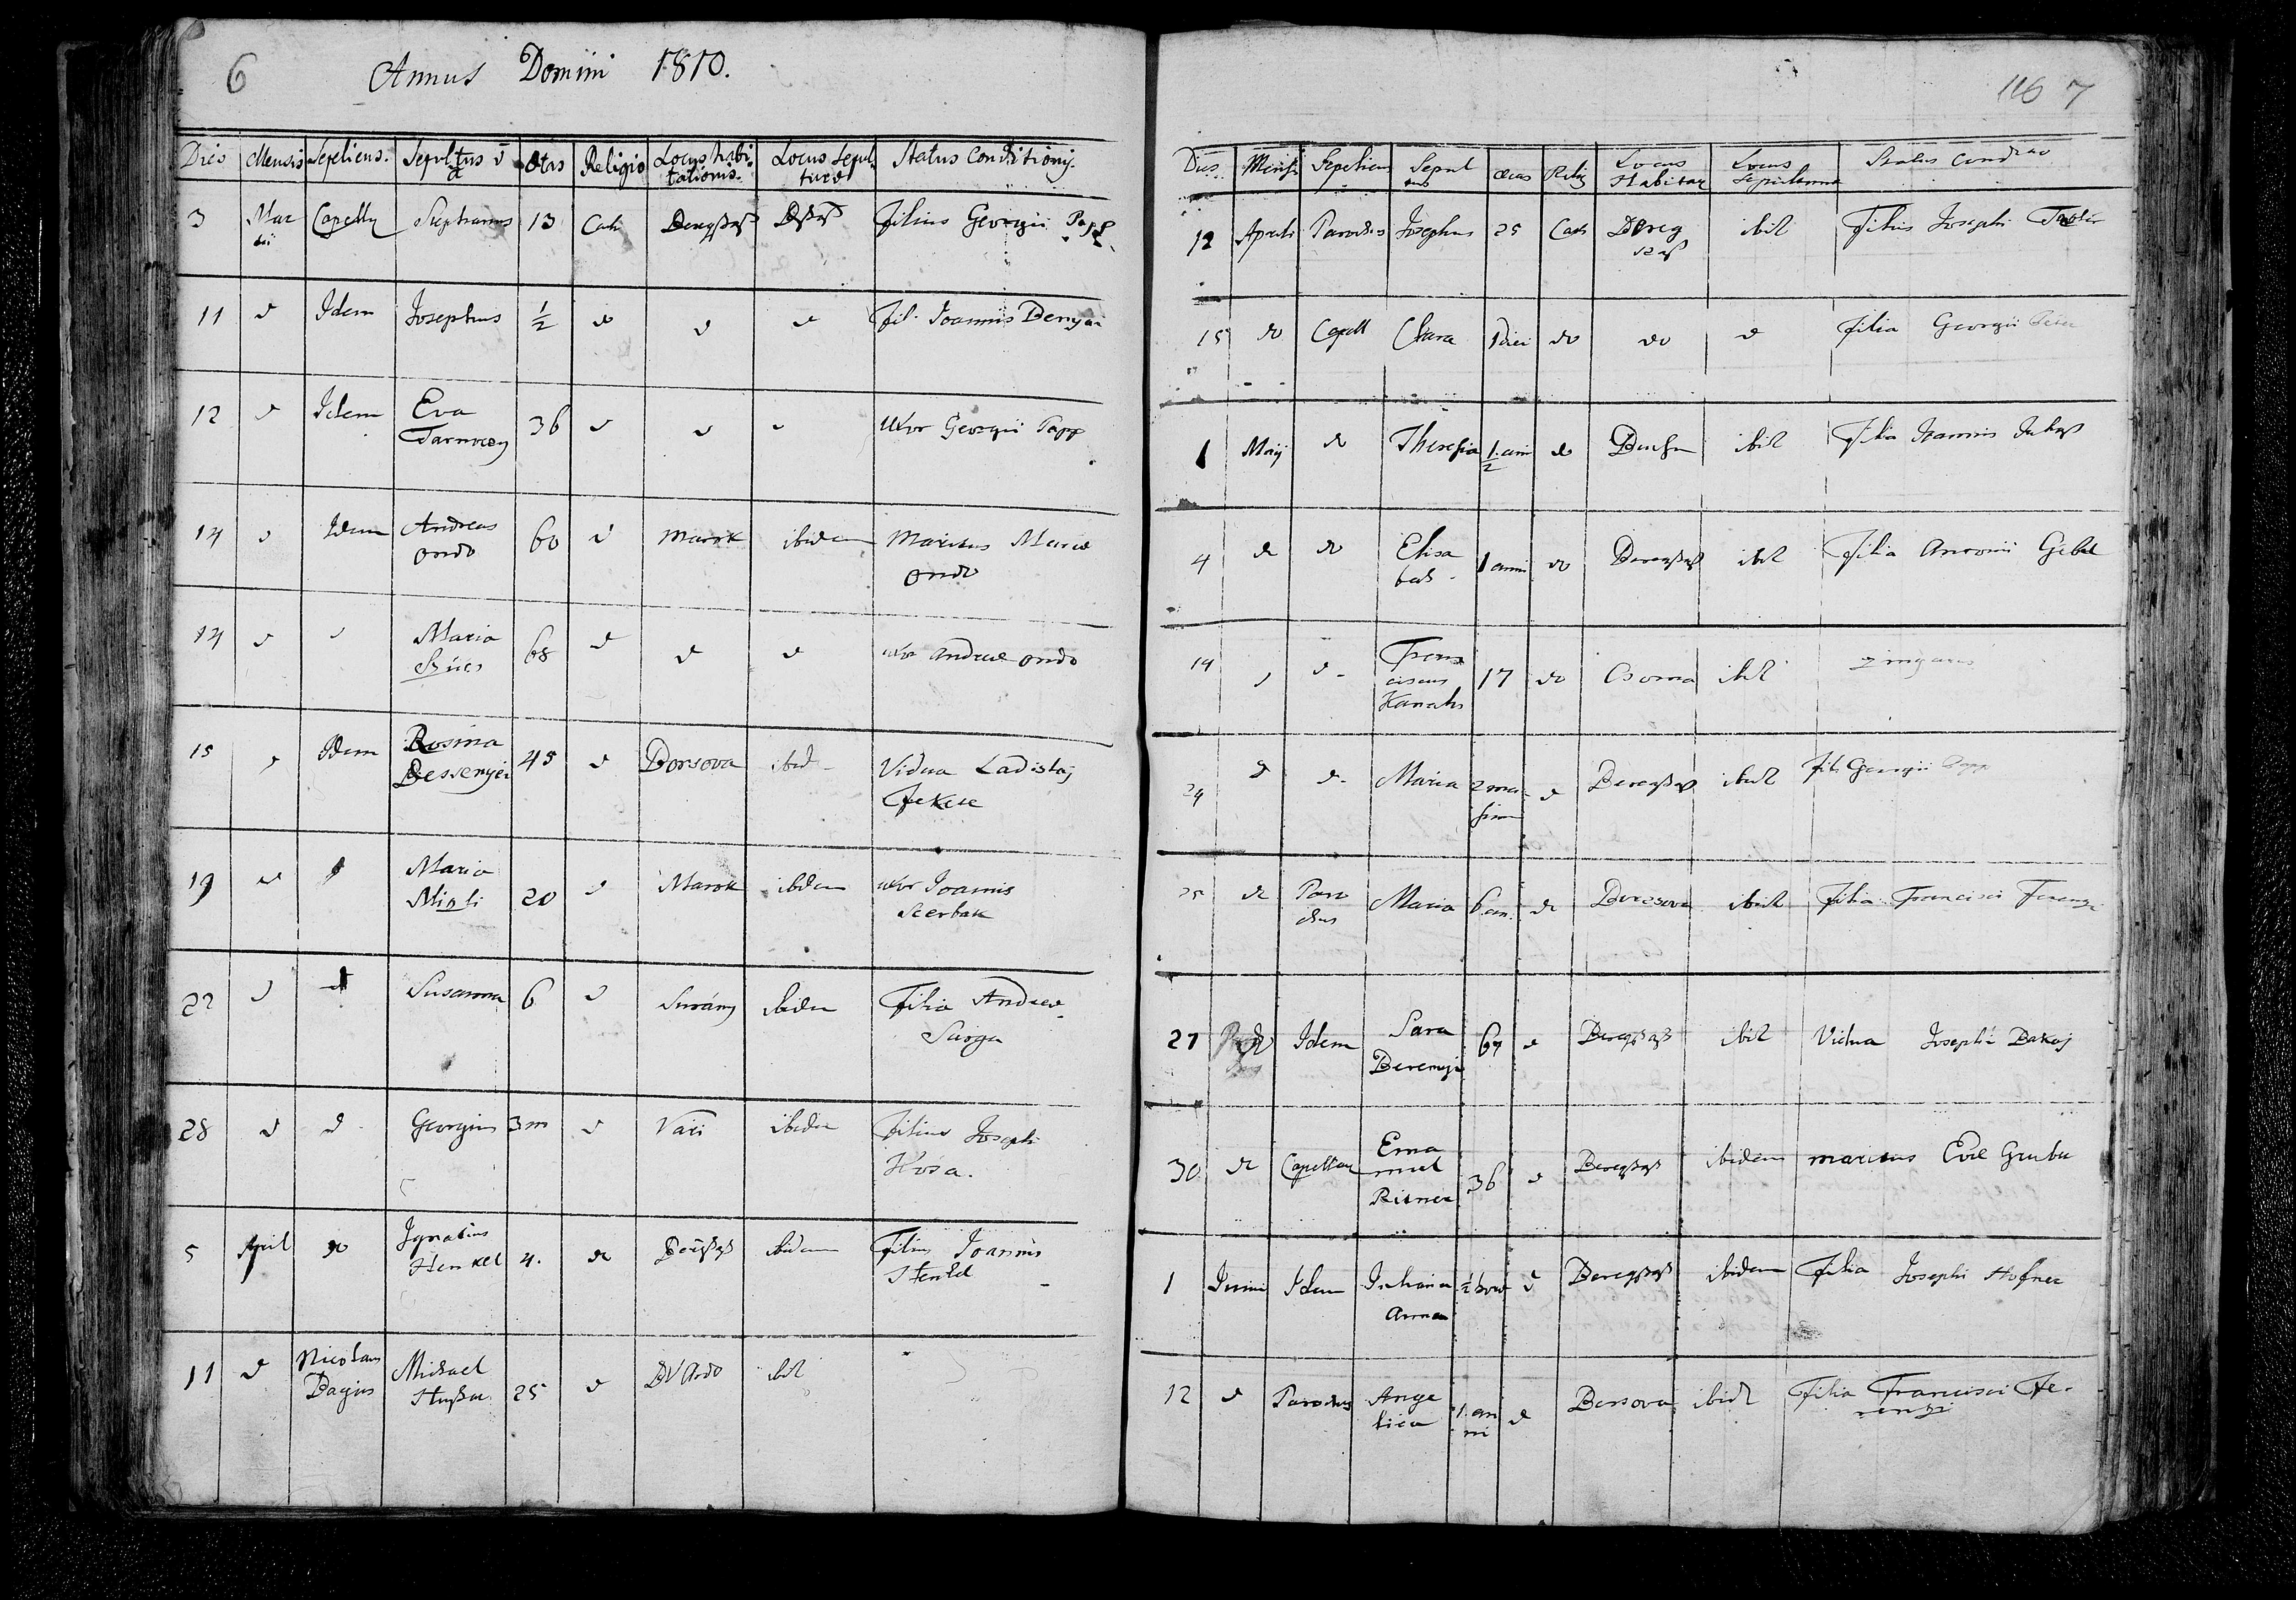 6 Annus Domini 1810.
Dies Mensis Sepeliens. Sepultus v̄ a Ætas Religio Locus habitationis. Locus sepulturæ Status Conditionis.
3 Martii Capella Stephanus 13 Cath Beregszász BSzász filius Georgii Papp
11 d Idem Josephus 1/2 do d d fil. Joannis Benyei
12 d Idem Eva
Tarnoczy 36 d d d Uxor Georgii Papp
14 d Idem Andreas
Ondo 60 d Marok ibidem Maritus Mariæ
Ondo
14 d d Maria
Szücs 68 d d d uxor Andreæ Ondo
15 d Idem Rosina
Bessenyei 45 d Borsova ibid Vidua Ladislaj
Fekete
19 d d Maria
20 d Marok ibidem uxor Joannis
Scerbak
22 d d Susanna 6 d Surány ibidem Filia Andreæ
Sarga
28 d d Georgius 3 m d Vári ibidem filius Josephi
Kosa.
5 April do Ignatius
Henkel 4. do ibidem Filius Joannis
Henkel
11 d Nicolaus
Michael
25 d ibid
116 7
Dies Mensis Sepeliens Sepultus ætas Relig Locus Habitat Locus Sepulturæ Status
12 Aprili Parochus Josephus 25 Cath Bereg
szász ibid Filius Josephi
15 do Capell Clara 1 diei do do d filia Georgii
1 Maij do Theresia 1/2 ani do ibid Filia Joannis
4 do do Elisa
beth 1 anni do Beregszász ibid Filia Antonii
14 d d Fran
ciscus
Kanalos 17 do Csoma ibid zingarus
24 d d Maria 2 men
sium d Beregszász ibid fil. Georgii Papp
25 do Paro
chus Maria 6 an. do Borsova ibid Filia Francisci Ferenzi
27 do Idem Sara
67 d Beregszász ibid Vidua Josephi Bakaj
30 do Capellan Ema
nuel
Ritner 36 d Beregszász ibidem maritus Evæ Gruber
1 Junii Idem Juliana
Anna 1/2 horæ d Beregszász ibidem Filia Josephi Hofner
12 d Parochus Ange
lica 1. an
ni d Borsova ibid Filia Francisci Fe-
renzi